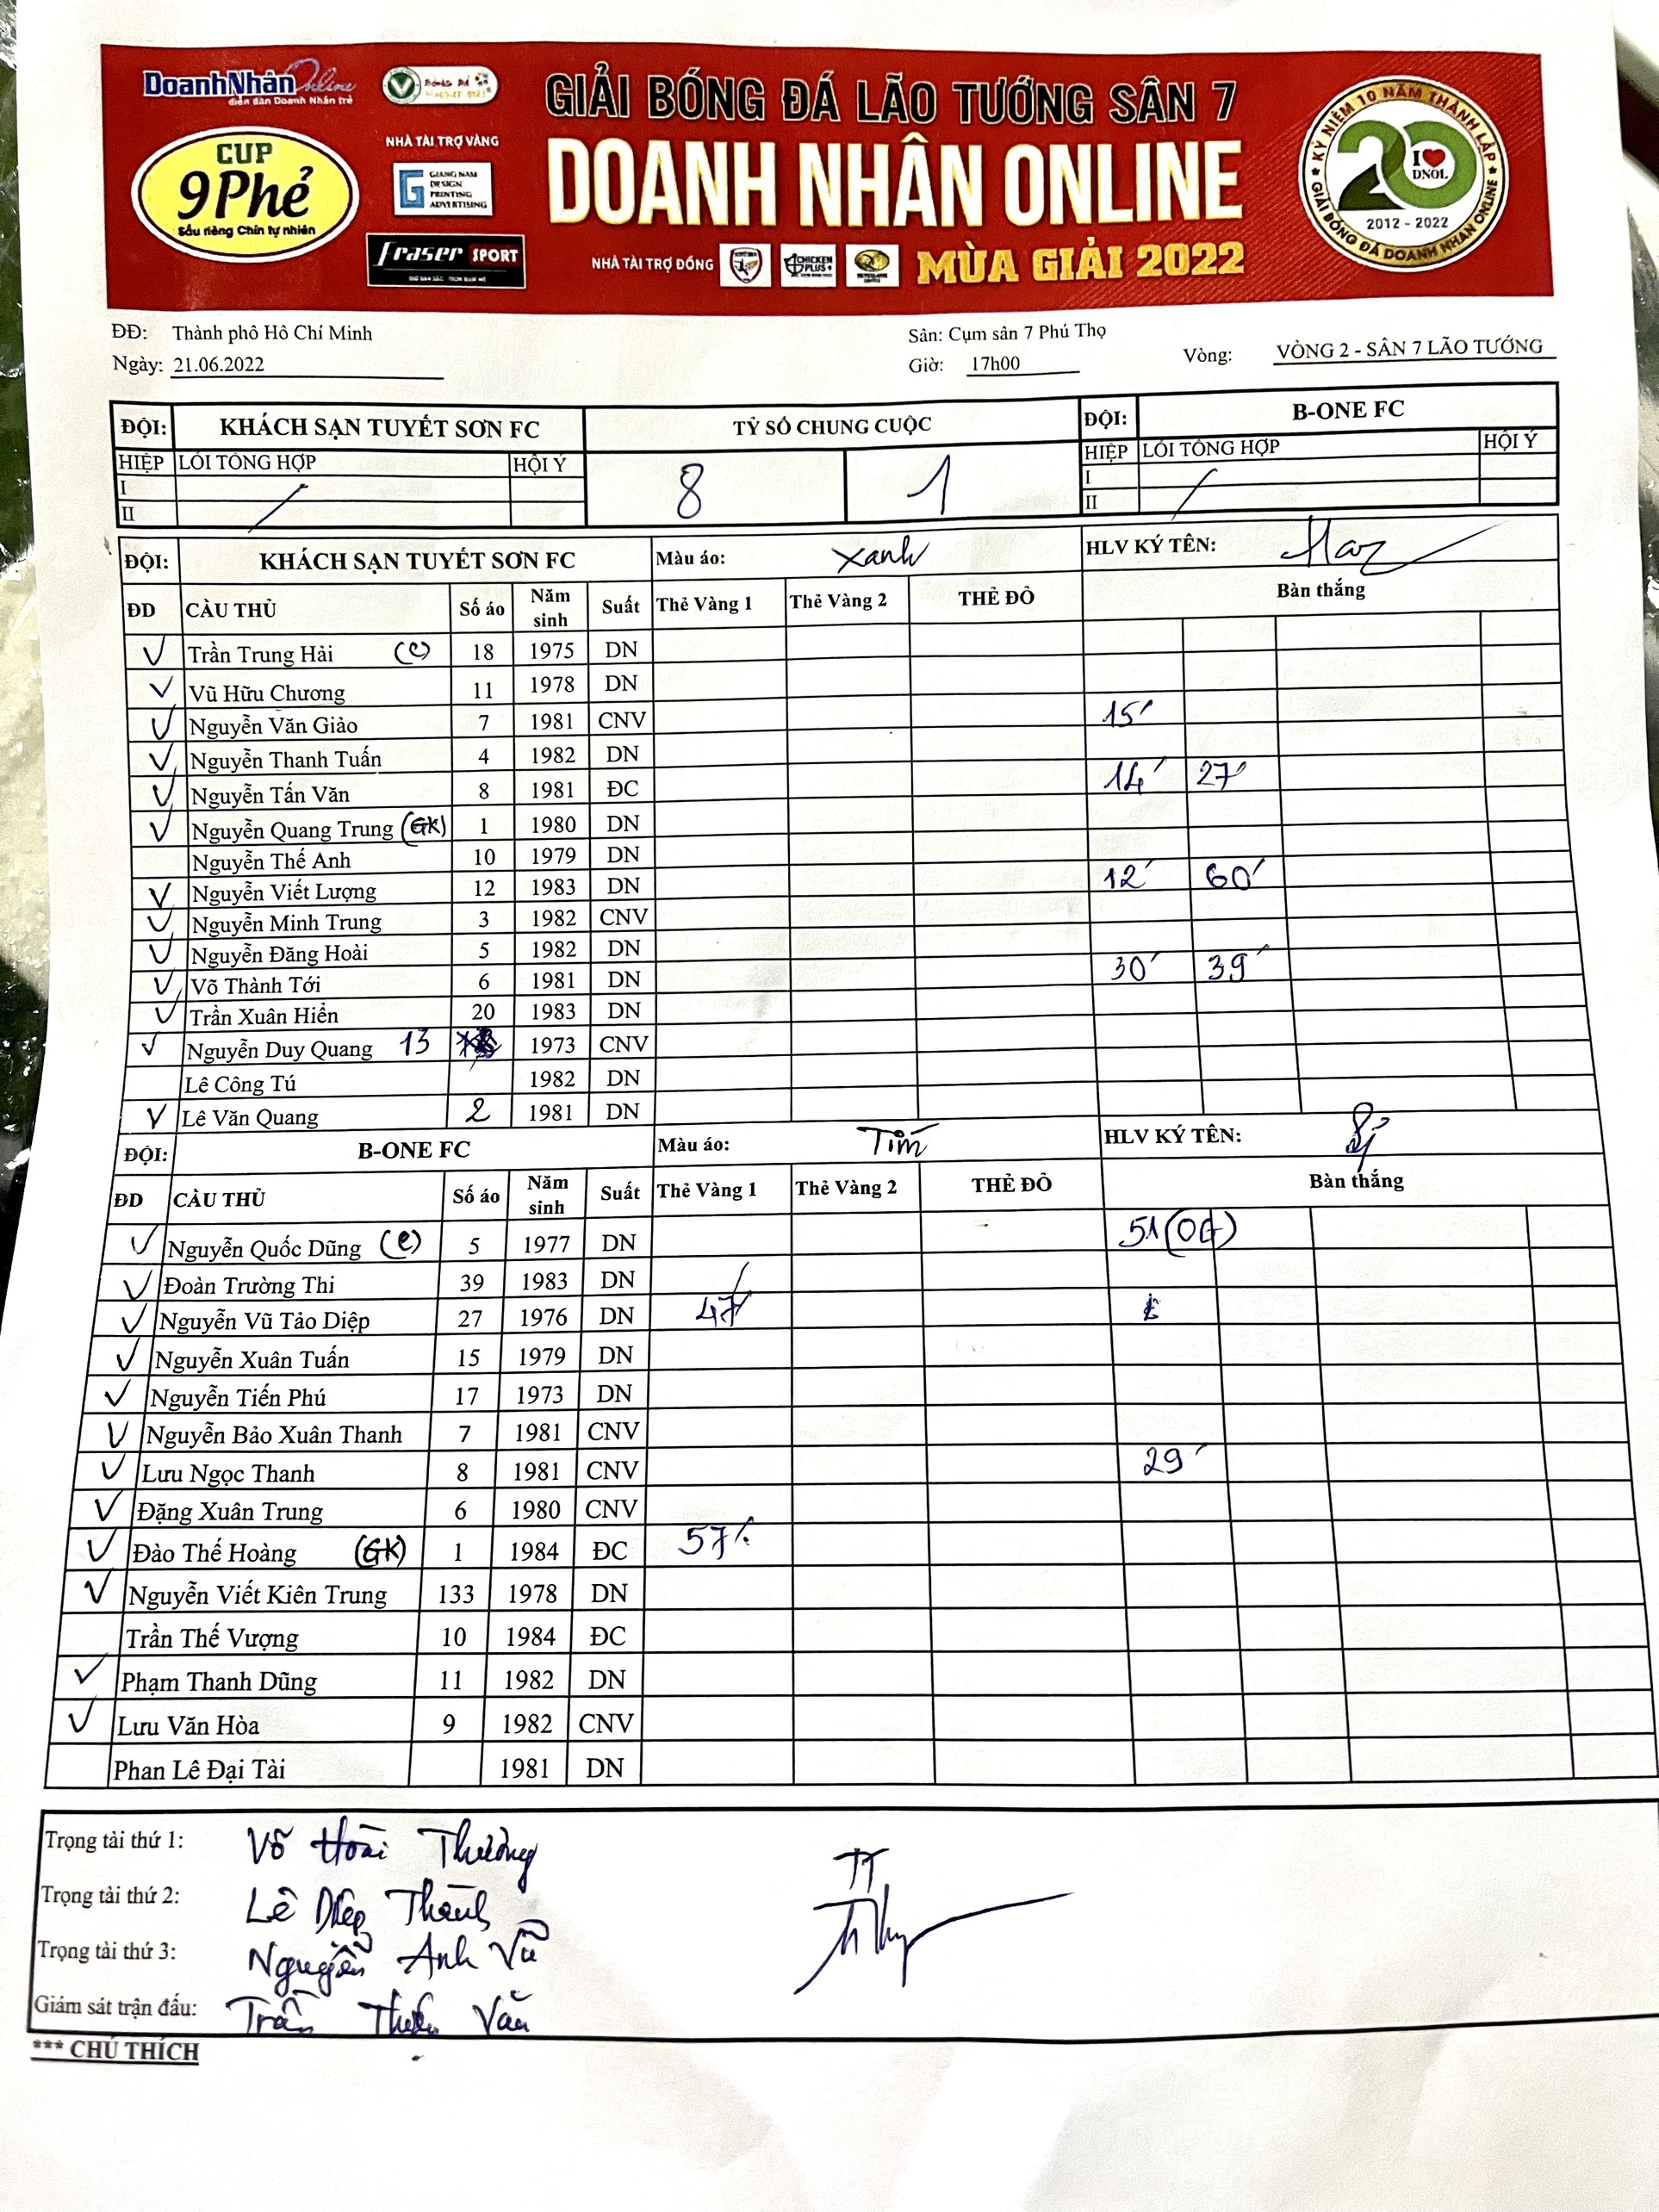 DoanhNhân Online
diễn đàn Doanh Nhân trẻ
CUP
9Phẻ
Sầu riêng Chín tự nhiên
NHÀ TÀI TRỢ VÀNG
GIANG NAM
DESIGN
PRINTING
ADVERTISING
fraser SPORT
GIẢI BÓNG ĐÁ LÃO TƯỚNG SÂN 7
DOANH NHÂN ONLINE
NHÀ TÀI TRỢ ĐỒNG
CHICKEN PLUS+
MÙA GIẢI 2022
KỶ NIỆM 10 NĂM THÀNH LẬP
20
I ❤ DNOL
2012 - 2022
GIẢI BÓNG ĐÁ DOANH NHÂN ONLINE
ĐĐ: Thành phố Hồ Chí Minh Sân: Cụm sân 7 Phú Thọ
Ngày: 21.06.2022 Giờ: 17h00 Vòng: VÒNG 2 - SÂN 7 LÃO TƯỚNG
ĐỘI: KHÁCH SẠN TUYẾT SƠN FC TỶ SỐ CHUNG CUỘC ĐỘI: B-ONE FC
HIỆP LỖI TỔNG HỢP HỘI Ý 8 1 HIỆP LỖI TỔNG HỢP HỘI Ý
I / I /
II II
ĐỘI: KHÁCH SẠN TUYẾT SƠN FC Màu áo: Xanh HLV KÝ TÊN:
ĐD CẦU THỦ Số áo Năm sinh Suất Thẻ Vàng 1 Thẻ Vàng 2 THẺ ĐỎ Bàn thắng
✓ Trần Trung Hải (C) 18 1975 DN
✓ Vũ Hữu Chương 11 1978 DN
✓ Nguyễn Văn Giảo 7 1981 CNV 15'
✓ Nguyễn Thanh Tuấn 4 1982 DN
✓ Nguyễn Tấn Văn 8 1981 ĐC 14' 27'
✓ Nguyễn Quang Trung (GK) 1 1980 DN
Nguyễn Thế Anh 10 1979 DN
✓ Nguyễn Viết Lượng 12 1983 DN 12' 60'
✓ Nguyễn Minh Trung 3 1982 CNV
✓ Nguyễn Đăng Hoài 5 1982 DN
✓ Võ Thành Tới 6 1981 DN 30' 39'
✓ Trần Xuân Hiển 20 1983 DN
✓ Nguyễn Duy Quang 13 1973 CNV
Lê Công Tú 1982 DN
✓ Lê Văn Quang 2 1981 DN
ĐỘI: B-ONE FC Màu áo: Tím HLV KÝ TÊN:
ĐD CẦU THỦ Số áo Năm sinh Suất Thẻ Vàng 1 Thẻ Vàng 2 THẺ ĐỎ Bàn thắng
✓ Nguyễn Quốc Dũng (C) 5 1977 DN 51(OG)
✓ Đoàn Trường Thi 39 1983 DN
✓ Nguyễn Vũ Tảo Diệp 27 1976 DN 47'
✓ Nguyễn Xuân Tuấn 15 1979 DN
✓ Nguyễn Tiến Phú 17 1973 DN
✓ Nguyễn Bảo Xuân Thanh 7 1981 CNV
✓ Lưu Ngọc Thanh 8 1981 CNV 29'
✓ Đặng Xuân Trung 6 1980 CNV
✓ Đào Thế Hoàng (GK) 1 1984 ĐC 57'
✓ Nguyễn Viết Kiên Trung 133 1978 DN
Trần Thế Vượng 10 1984 ĐC
✓ Phạm Thanh Dũng 11 1982 DN
✓ Lưu Văn Hòa 9 1982 CNV
Phan Lê Đại Tài 1981 DN
Trọng tài thứ 1: Võ Hoài Thương
Trọng tài thứ 2: Lê Diệp Thành
Trọng tài thứ 3: Nguyễn Anh Vũ
Giám sát trận đấu: Trần Thiện Văn
*** CHÚ THÍCH